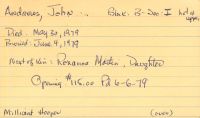 Andrews, John... Block. B- Sec- I
Died. May 30, 1979
Buried. June 4, 1979
Next of Kin: Roxanna Martin, Daughter
Opening $115.00 Pd 6-6-79
Millicent Hooper (over)